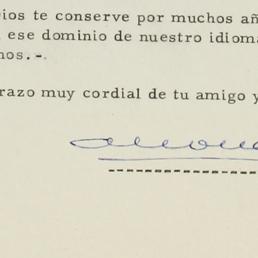 ios te conserve por muchos añ
ese dominio de nuestro idioma
nos.-
razo muy cordial de tu amigo y